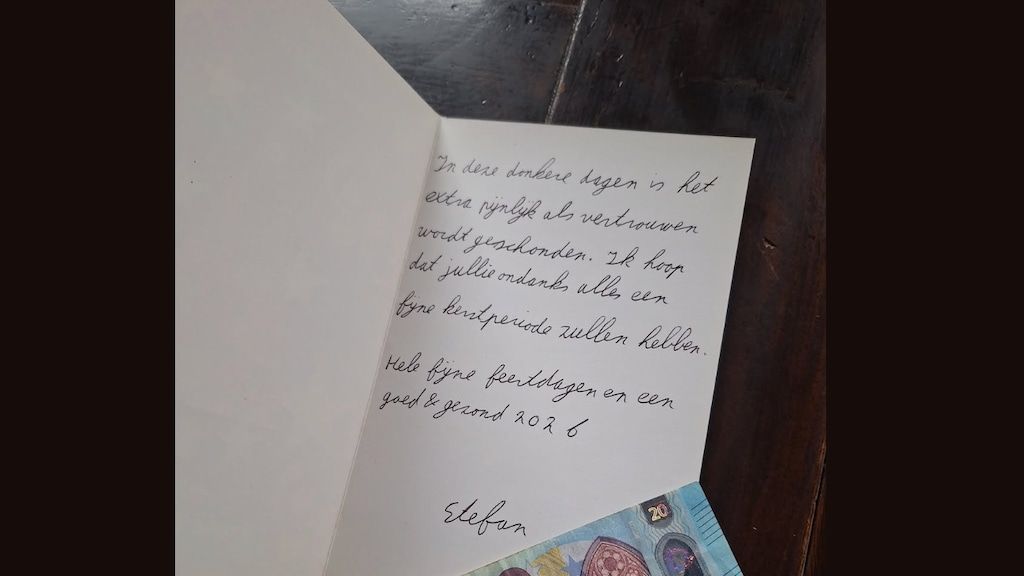 In deze donkere dagen is het
extra pijnlijk als vertrouwen
wordt geschonden. Ik hoop
dat jullie ondanks alles een
fijne kerstperiode zullen hebben.
Hele fijne feestdagen en een
goed & gezond 2026
Stefan
20